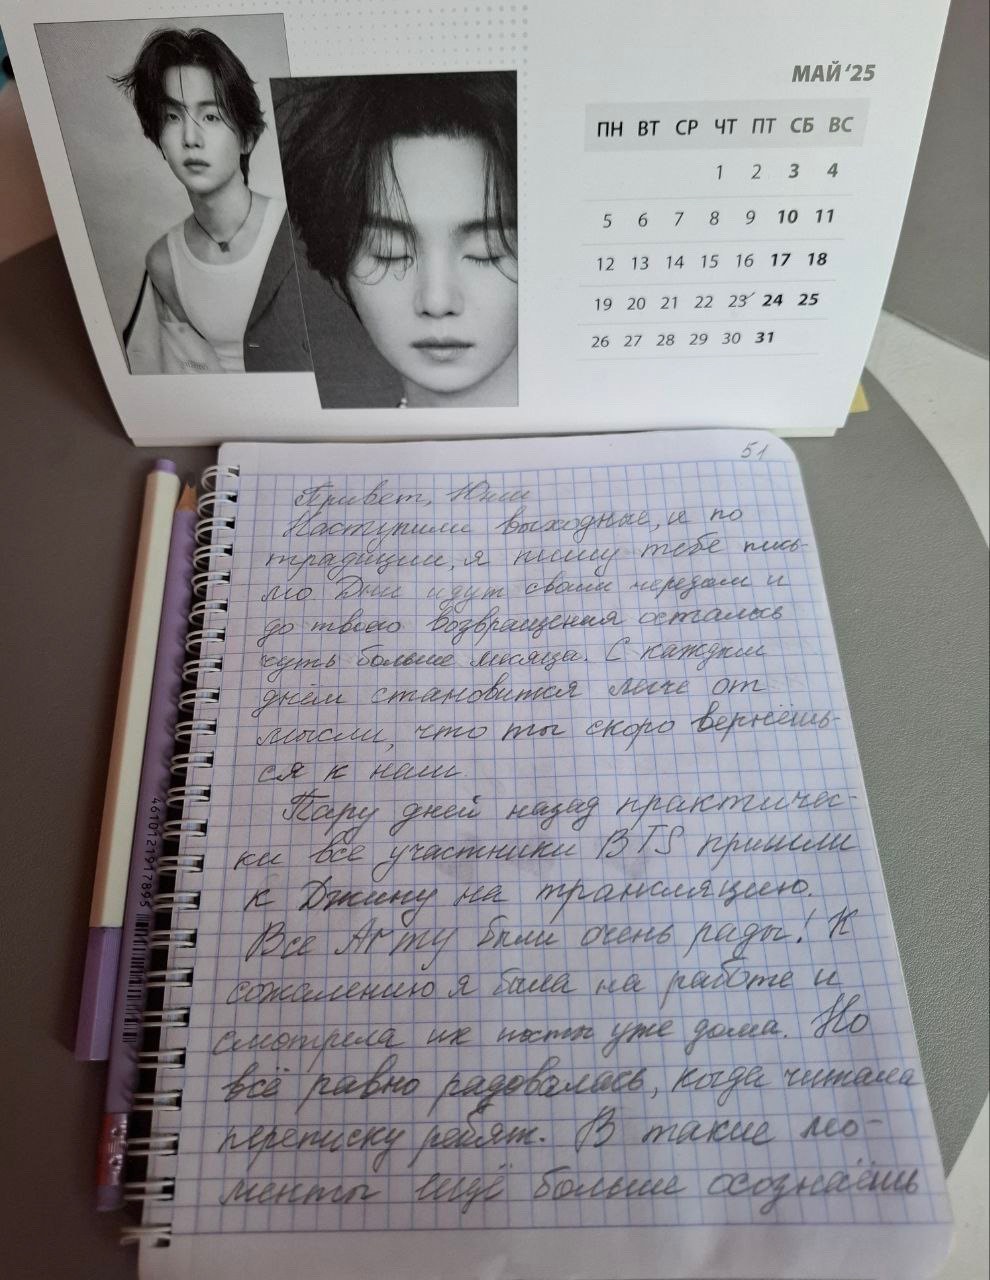 МАЙ ‘25
ПН ВТ СР ЧТ ПТ СБ ВС
1 2 3 4
5 6 7 8 9 10 11
12 13 14 15 16 17 18
19 20 21 22 23 24 25
26 27 28 29 30 31
51
Привет, Юнги
Наступили выходные, и по
традиции, я пишу тебе пись-
мо. Дни идут своим чередом и
до твоего возвращения осталось
чуть больше месяца. С каждым
днём становится легче от
мысли, что ты скоро вернёшь-
ся к нам.
Пару дней назад практичес-
ки все участники BTS пришли
к Джину на трансляцию.
Все Арту были очень рады! К
сожалению я была на работе и
смотрела их посты уже дома. Но
всё равно радовалась, когда читала
переписку ребят. В такие мо-
менты ещё больше осознаёшь
4610121917895